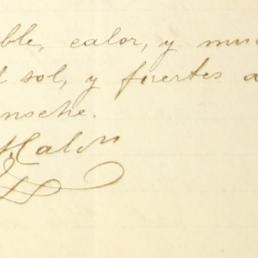 ble, calor, y mu
l sol, y fuertes a
noche.